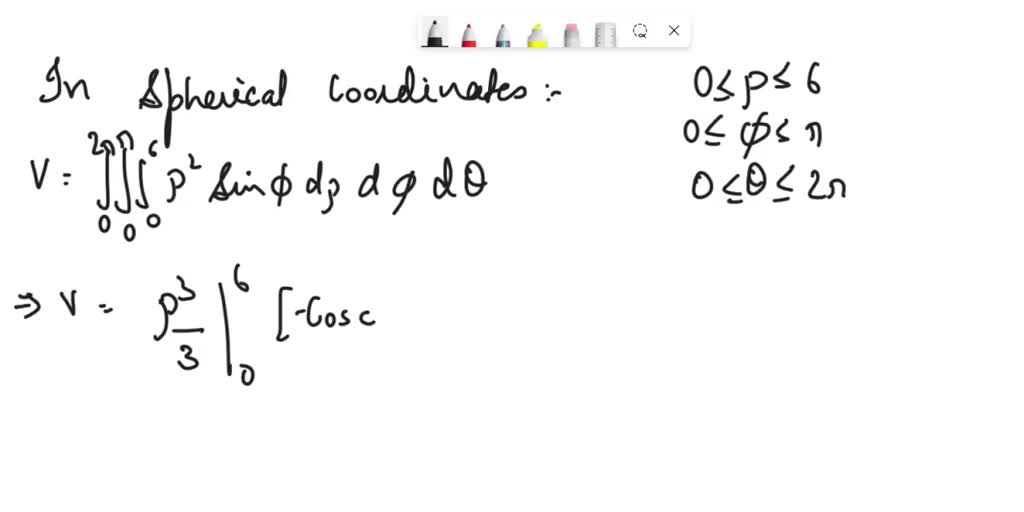 In Spherical Coordinates :-
0 ≤ ρ ≤ 6
0 ≤ φ ≤ π
0 ≤ θ ≤ 2π
V = ∫₀^{2π} ∫₀^{π} ∫₀^{6} ρ² Sin φ dρ d φ dθ
⇒ V = ρ³/3 |₀⁶ [-Cos c